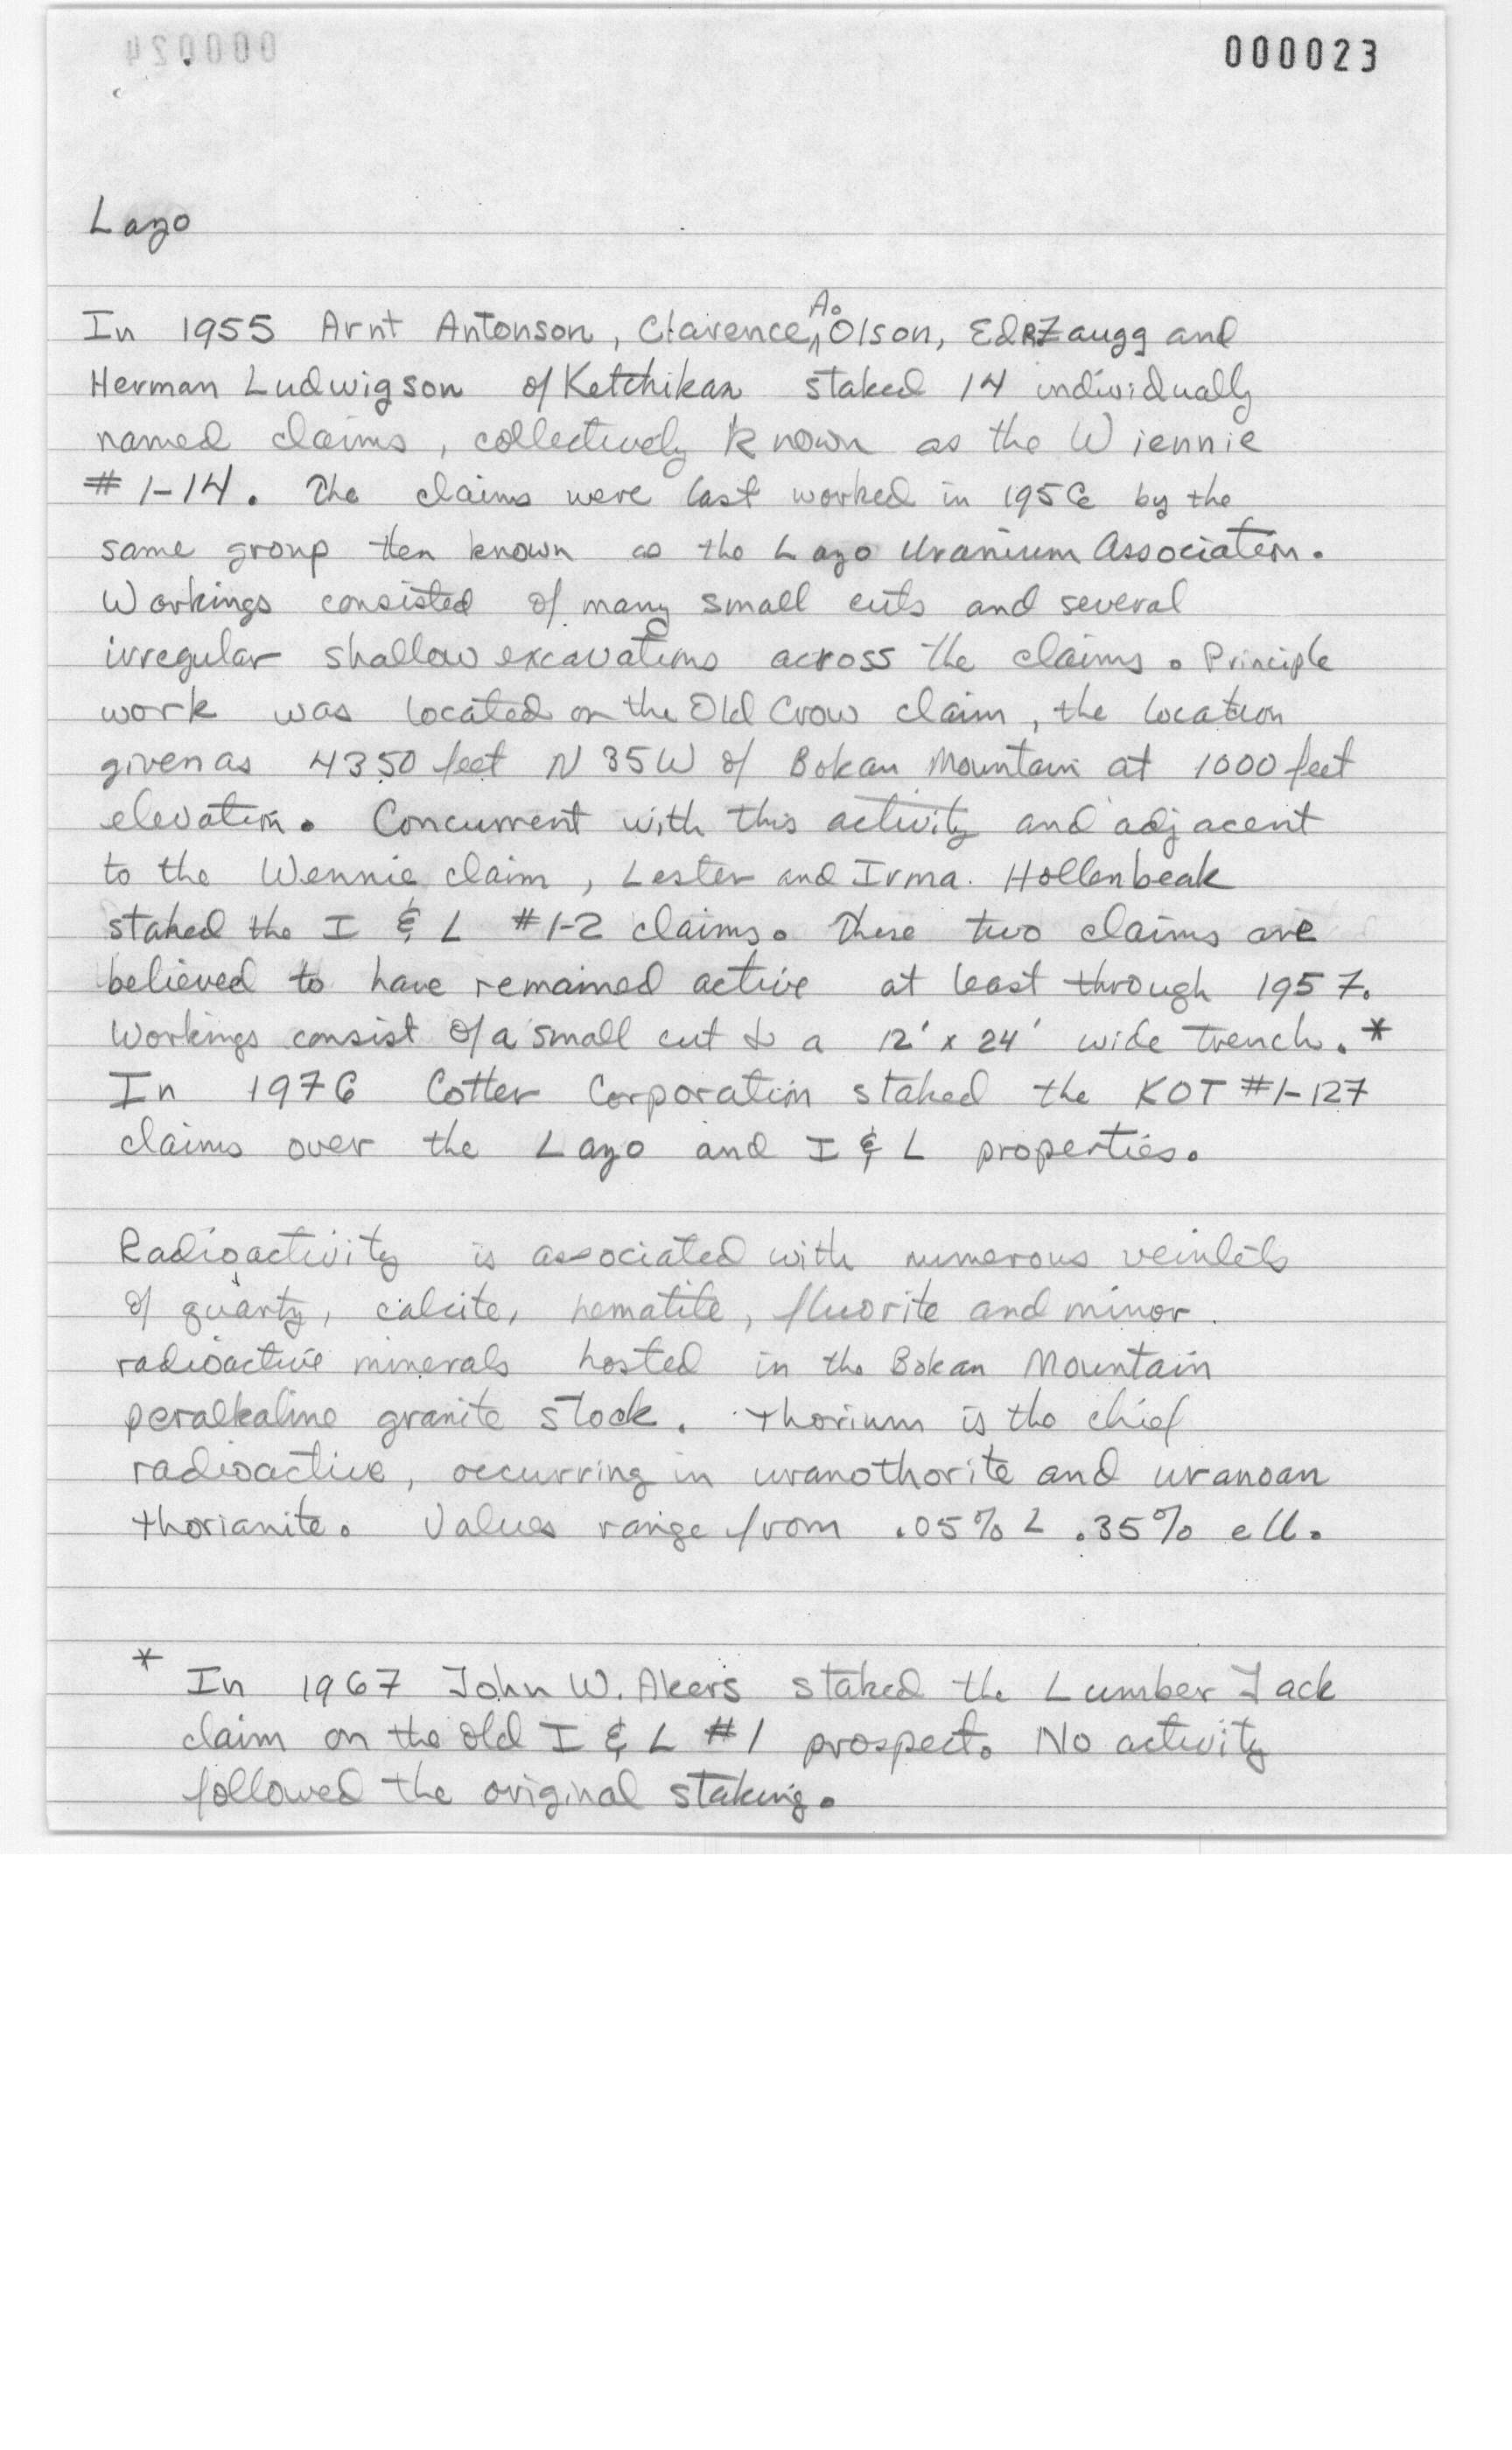 000023
Lazo
In 1955 Arnt Antonson, Clarence A. Olson, Ed R Zaugg and
Herman Ludwigson of Ketchikan staked 14 individually
named claims, collectively known as the Wiennie
# 1-14. The claims were last worked in 1956 by the
same group then known as the Lazo Uranium Association.
Workings consisted of many small cuts and several
irregular shallow excavations across the claims. Principle
work was located on the Old Crow claim, the location
given as 4350 feet N 35 W of Bokan Mountain at 1000 feet
elevation. Concurrent with this activity and adjacent
to the Wennie claim, Lester and Irma Hollenbeak
staked the I & L #1-2 claims. These two claims are
believed to have remained active at least through 1957.
Workings consist of a small cut & a 12' x 24' wide trench. *
In 1976 Cotter Corporation staked the KOT #1-127
claims over the Lazo and I & L properties.
Radioactivity is associated with numerous veinlets
of quartz, calcite, hematite, fluorite and minor
radioactive minerals hosted in the Bokan Mountain
peralkaline granite stock. Thorium is the chief
radioactive, occurring in uranothorite and uranoan
thorianite. Values range from .05% .35% eU.
* In 1967 John W. Akers staked the Lumber Jack
claim on the old I & L #1 prospect. No activity
followed the original staking.